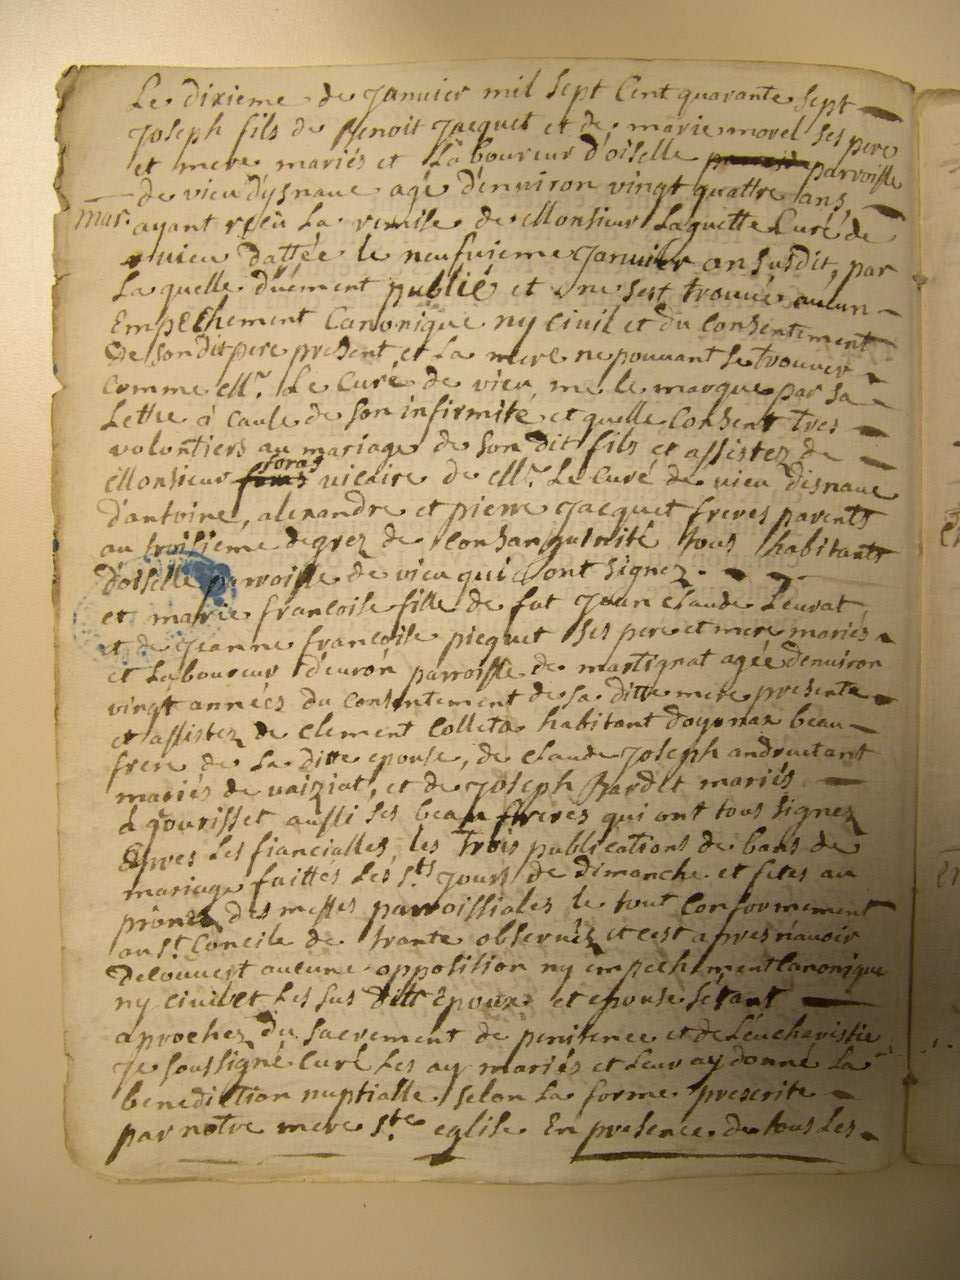 Le dixieme de Janvier mil sept Cent quarante sept
Joseph fils de Benoit Jacquet et de marie morel ses pere
et mere mariés et Laboureur d'oiselle parroisse
de vieu d'ysnave agé d'environ vingt quattre ans
Mar. ayant reçu La remise de Monsieur Laguette Curé de
vieu dattée le neufvieme Janvier an susdit, par
La quelle düement publié et ne sest trouvé aucun
Empechement Canonique ny civil et du Consentement
de son dit pere present, et La mere ne pouvant se trouver
comme Mr. Le Curé de vieu me le marque par sa
Lettre à cause de son infirmité et quelle Consent tres
volontiers au mariage de son dit fils et assistez de
Monsieur vicaire de Mr. Le Curé de vieu disnave
d'antoine, alexandre et pierre Jacquet freres parents
au troisieme degrez de Consanguinité tous habitants
d'oiselle parroisse de vieu qui ont signez.
et marie francoise fille de fut Jean Claude Leurat
et de Jeanne francoise picquet ses pere et mere mariés
et Laboureur d'euron parroisse de martignat agée denviron
vingt années du consentement de sa ditte mere presente
et assistez de Clement Colleta habitant doyonax beau
frere de La ditte epouse, de Claude Joseph
mariés de vaiziat, et de Joseph Bardet mariés
à gourisset aussi ses beau freres qui ont tous signez
Apres Les fiancialles, les trois publications de bans de
mariage faittes Les sts Jours de dimanche et fetes au
prônez des messes parroissiales le tout Conformement
au st. Concile de trante observéz et cest apres n'avoir
decouvert aucune opposition ny empechement Canonique
ny civil et Les sus ditt Epoux et epouse sétant
aprochez du sacrement de penitence et de Léucheristie
Je soussigné Curé Les ay mariés et Leur ay donné La
benediction nuptialle selon La forme prescrite
par notre mere ste. eglise En presence de tous Les